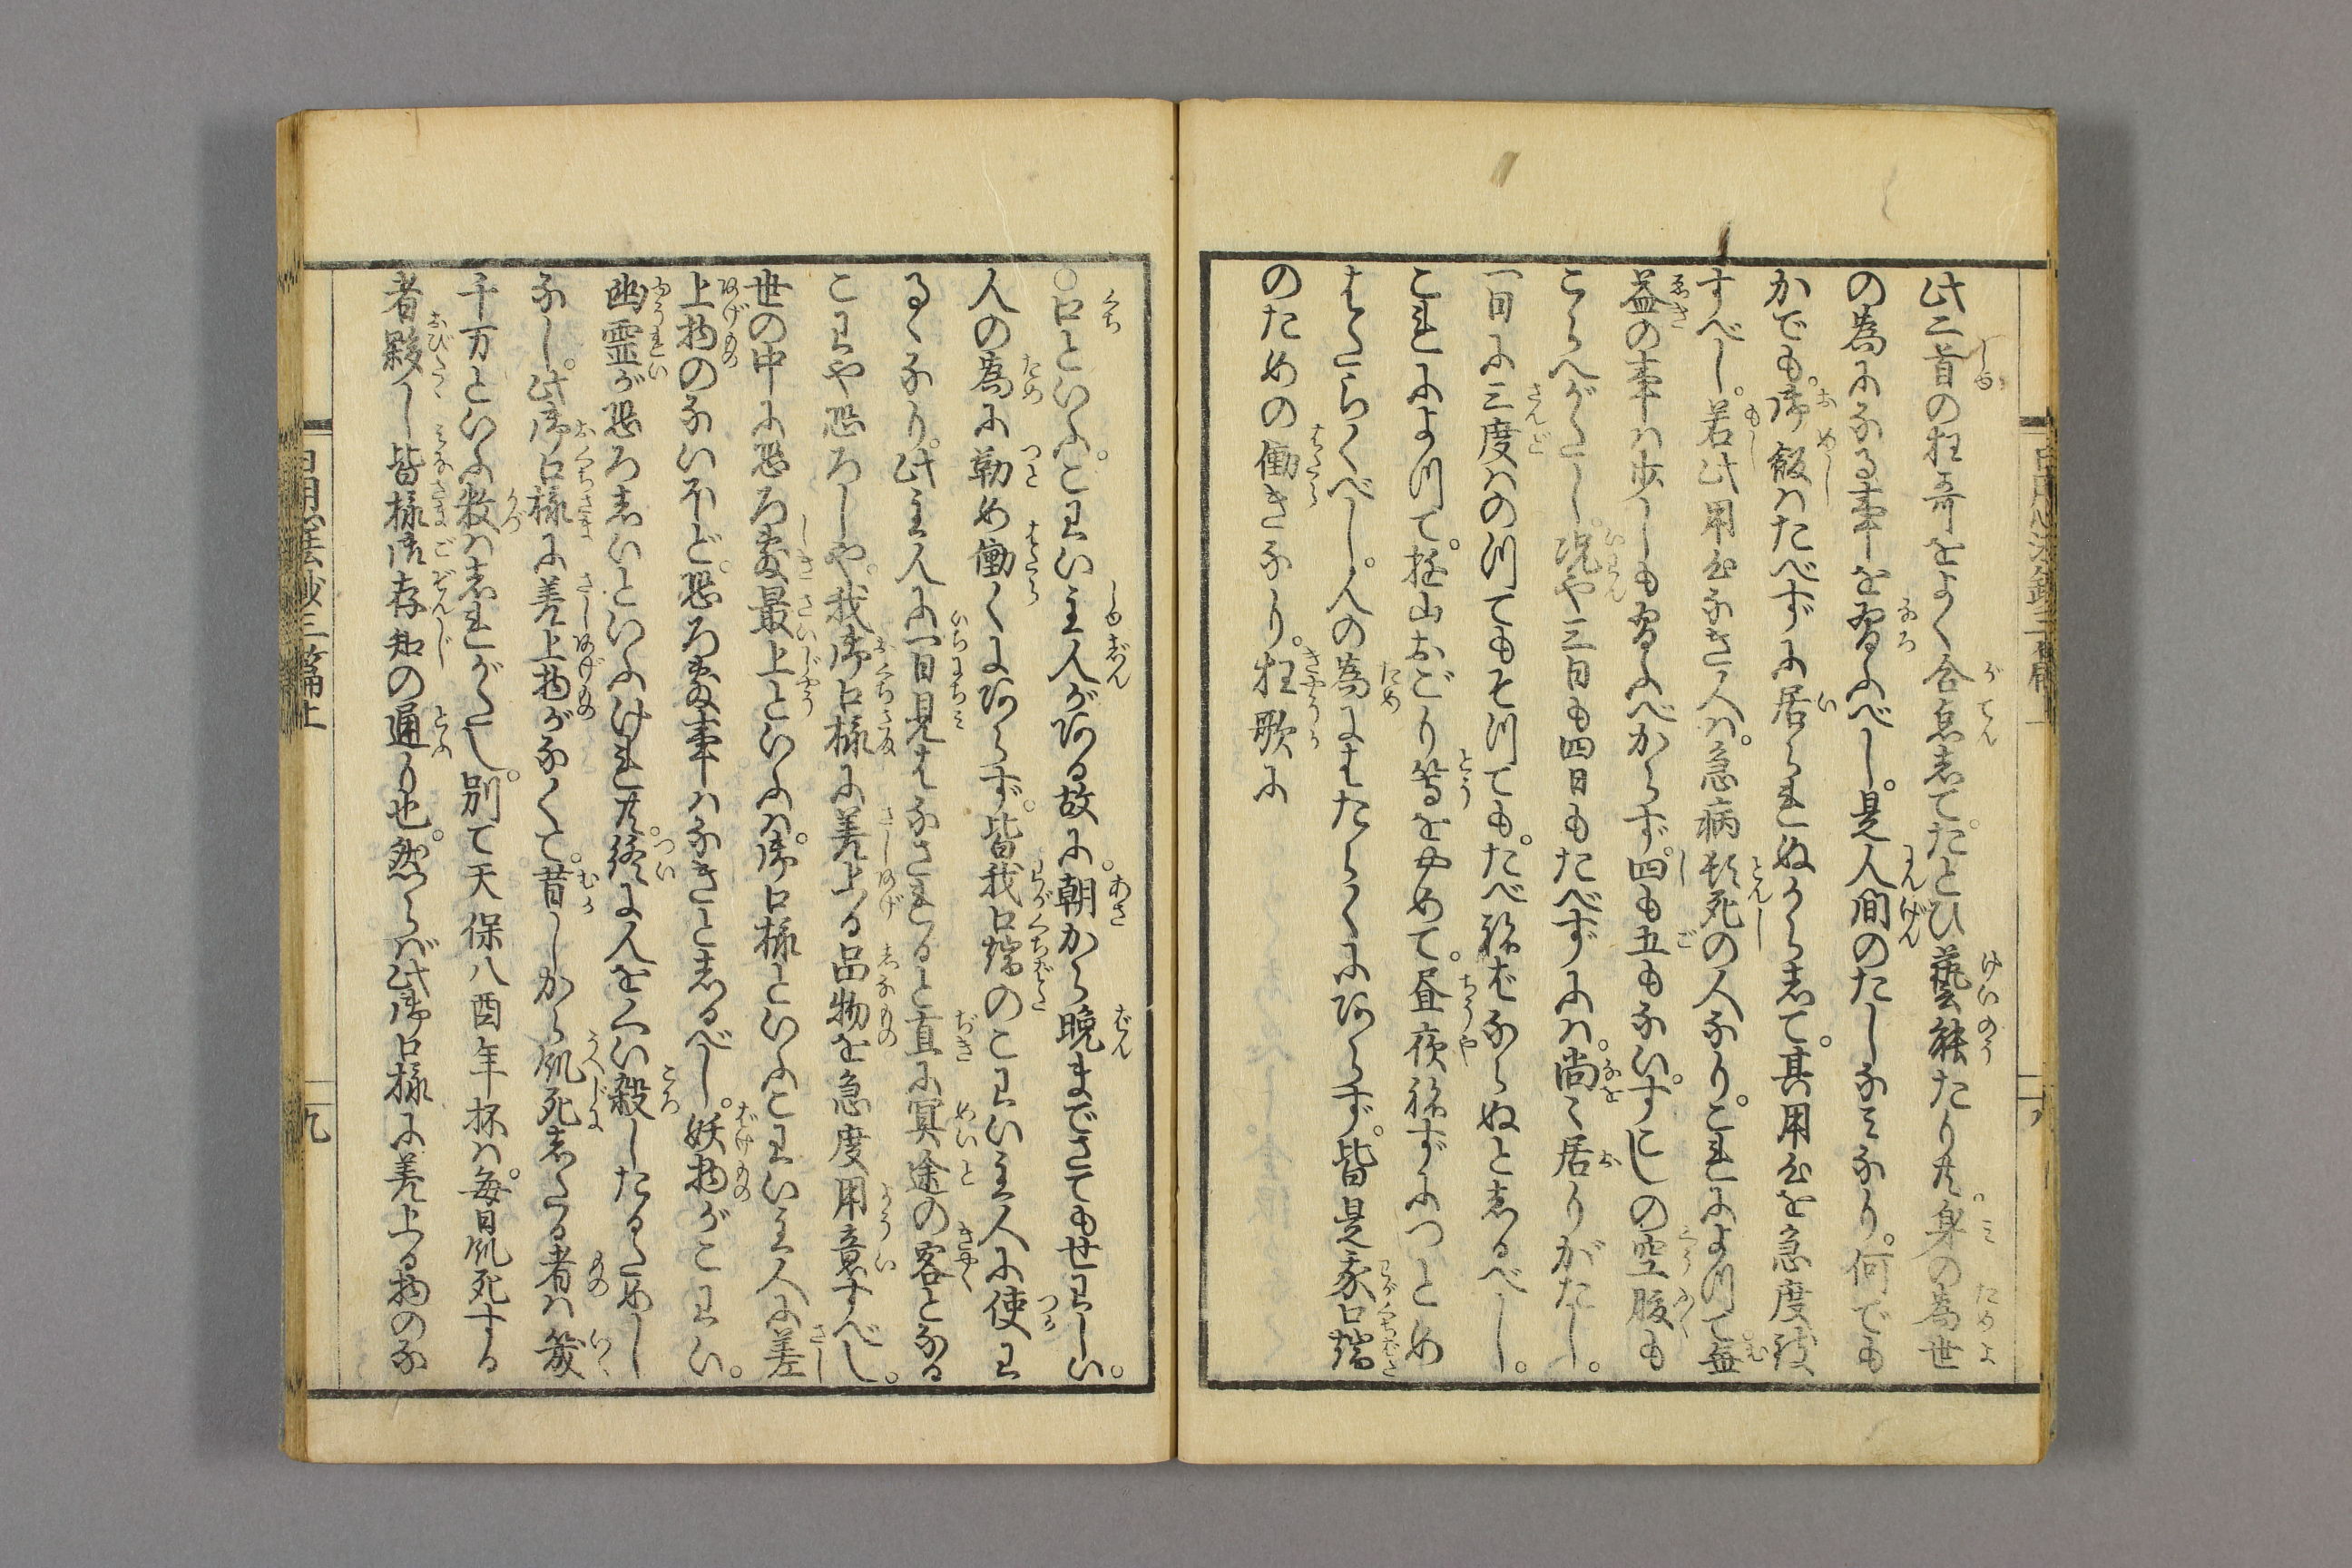 此二首の狂哥をよく合点志てたとひ藝能たり共。身の為世
の為にならぬ事を習ふべし。是人間のたしなミなり。何でも
かでも。御飯ハたべずに居られぬから志て。其用心を急度致
すべし。若此用心なき人ハ。急病頓死の人なり。これによつて。無
益の事ハ少しも習ふべからず。四も五もない。すこしの空腹も
こらへがたし。況や三日も四日もたべずにハ。尚〻居りがたし。
一日に三度ハのつても そつても。たべねばならぬと志るべし。
これによつて。怪山おごり等をやめて。昼夜ねずにつとめ
はたらくべし。人の為にはたらくにあらず。皆是我口端
のための働きなり。狂歌に
〇口といふ。こわい主人がある故に。朝から晩までさても世わしい。
人の為に勤め働くにあらず。皆我口端のこわい主人に使わ
るゝなり。此主人に一日見はなされると直に冥途の客となる
こわや恐ろしや。我御口様に差上る品物を急度用意すべし。
世の中に恐ろ敷最上といふハ。御口様といふこわい主人に差
上物のないほど。恐ろ敷事ハなきと志るべし。妖物がこわい。
幽霊が恐ろ志いといふけれ共。終に人をくい殺したるためし
なし。此御口様に差上物がなくて。昔しから飢死志たる者ハ幾
千万といふ数ハ志れがたし。別て天保八酉年抔ハ。毎日飢死する
者夥し皆様御存知の通り也。然らバ此御口様に差上る物のな
三篇上
九